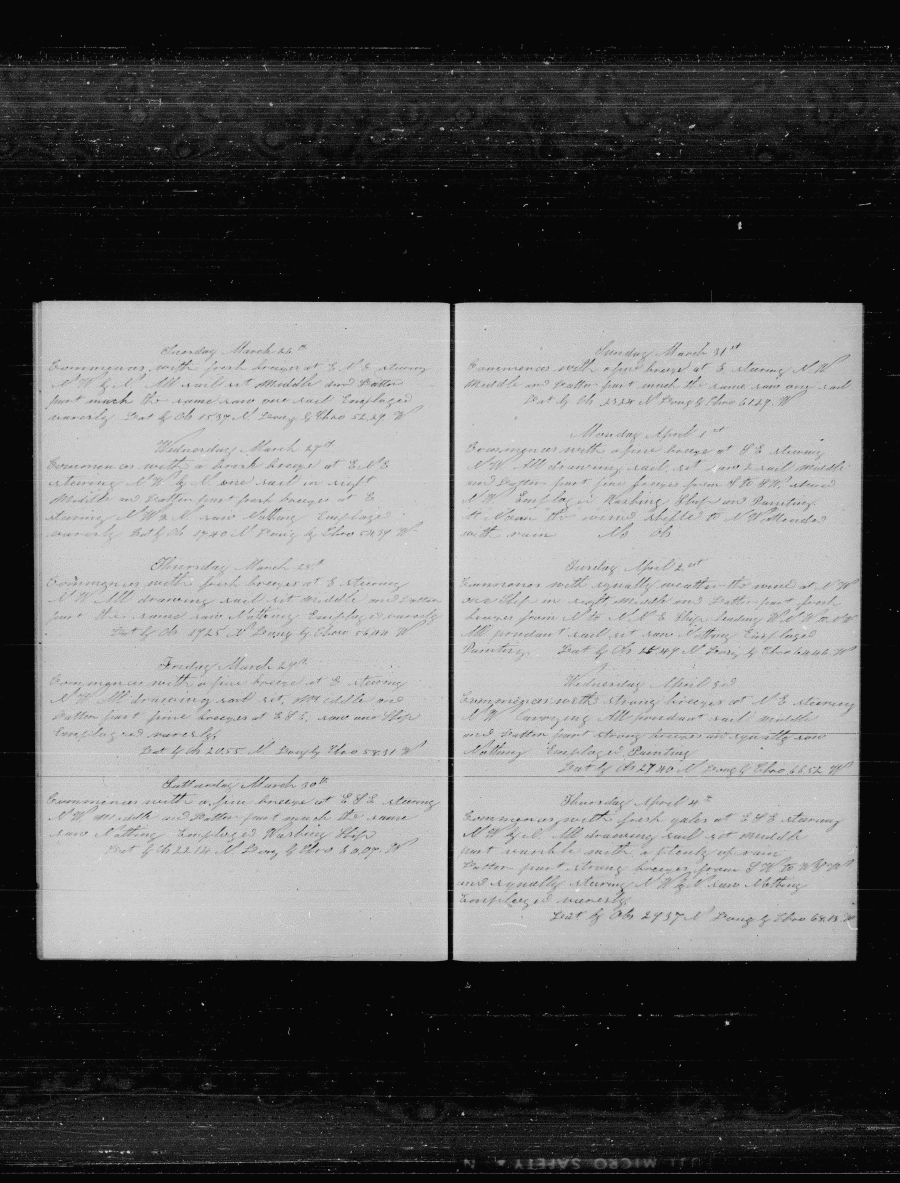 Tuesday March 26th
Commences with fresh breezes at E N E steering
N W by N All sail set Middle and Latter
part much the same saw one sail Employed
variously Lat by Ob 15 37 N Long by Chro 52 29 W
Wednesday March 27th
Commences with a brisk breeze at E N E
steering N W by N one sail in sight
Middle and Latter part fresh breezes at E
steering N W by N saw Nothing Employed
variously Lat by Ob 17 40 N Long by Chro 54 37 W
Thursday March 28th
Commences with fresh breezes at E steering
N W All drawing sail set Middle and Latter
part the same saw Nothing Employed variously
Lat by Ob 19 25 N Long by Chro 56 44 W
Friday March 29th
Commences with a fine breeze at E steering
N W All drawing sail set, Middle and
Latter part fine breezes at E S E, saw one Ship
Employed variously
Lat by Ob 20 55 N Long by Chro 58 31 W
Satturday March 30th
Commences with a fine breeze at E S E steering
N W Middle and Latter part much the same
saw Nothing Employed Washing Ship
Lat by Ob 22 14 N Long by Chro W
Sunday March 31st
Commences with a fine breeze at E steering N W
Middle and Latter part much the same saw one sail
Lat by Ob 23 24 N Long by Chro 61 29 W
Monday April 1st
Commences with a fine breeze at S E steering
N W All drawing sail set saw 2 sail Middle
and Latter part fine breezes from S to S W, steered
N W Employed Washing Ship and Painting
the wind shifted to N W attended
with rain No Ob
Tuesday April 2nd
Commences with squally weather the wind at N W
one Ship in sight, Middle and Latter part fresh
breezes from N to N N E Ship heading W N W to N W
All prudent sail set saw Nothing Employed
Painting Lat by Ob 25 49 N Long by Chro 64 46 W
Wednesday April 3rd
Commences with strong breezes at N E steering
N W Carrying All prudent sail Middle
and Latter part strong breezes and squally saw
Nothing Employed Painting
Lat by Ob 27 40 N Long by Chro 66 52 W
Thursday April 4th
Commences with fresh gales at E S E steering
N W by N All drawing sail set Middle
part varible with a plenty of rain
Latter part strong breezes from S W to
and squally steering N W by N saw Nothing
Employed variously
Lat by Ob 29 37 N Long by Chro 68 18 W
MICRO SAFETY